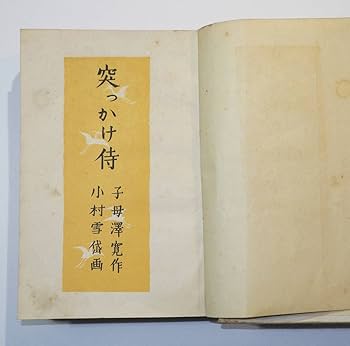 突っかけ侍
子母澤寛作
小村雪岱画